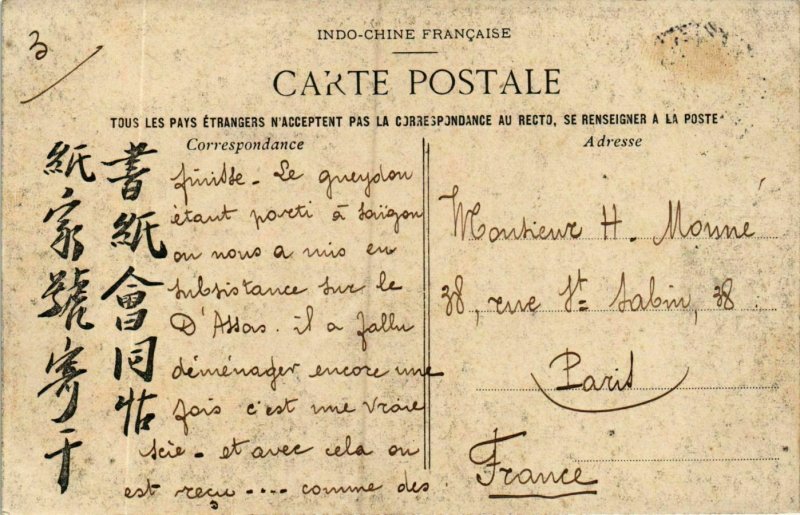 3
INDO-CHINE FRANÇAISE
CARTE POSTALE
TOUS LES PAYS ÉTRANGERS N'ACCEPTENT PAS LA CORRESPONDANCE AU RECTO, SE RENSEIGNER A LA POSTE
Correspondance
finisse - Le gueydon
étant parti à Saïgon
on nous a mis en
subsistance sur le
D'Assas. il a fallu
déménager encore une
fois c'est une vraie
scie - et avec cela on
est reçu .... comme des
書紙會同
紙家號寄干
Adresse
Monsieur H. Monné
38, rue St Sabin, 38
Paris
France